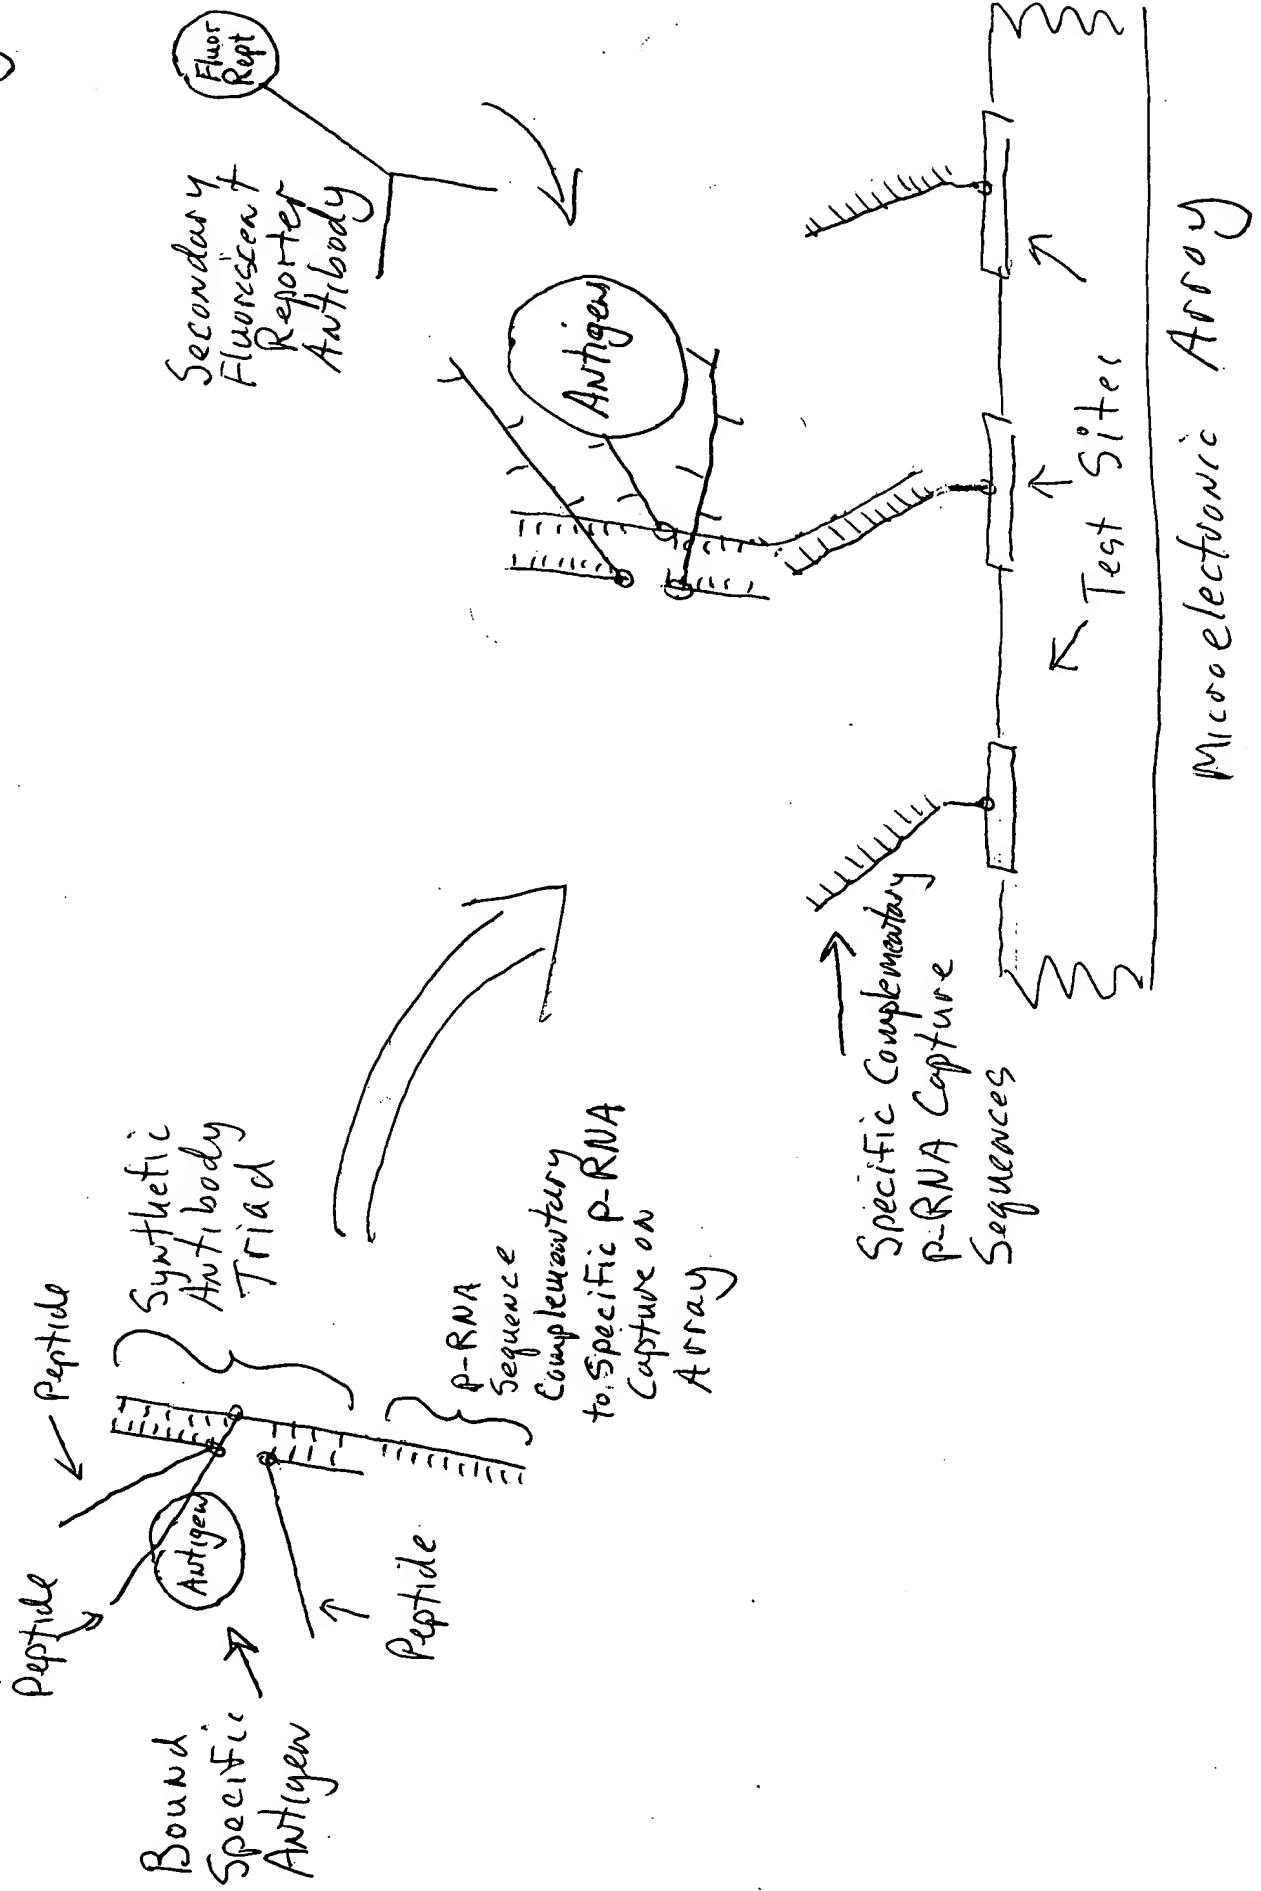 Peptide
Peptide
Bound
Specific
Antigen
Antigen
Peptide
Synthetic
Antibody
Triad
p-RNA
Sequence
Complementary
to Specific p-RNA
Capture on
Array
Secondary
Fluoriscent
Reporter
Antibody
Fluor
Rept
Antigen
Specific Complementary
p-RNA Capture
Sequences
Test Sites
Microelectronic Array